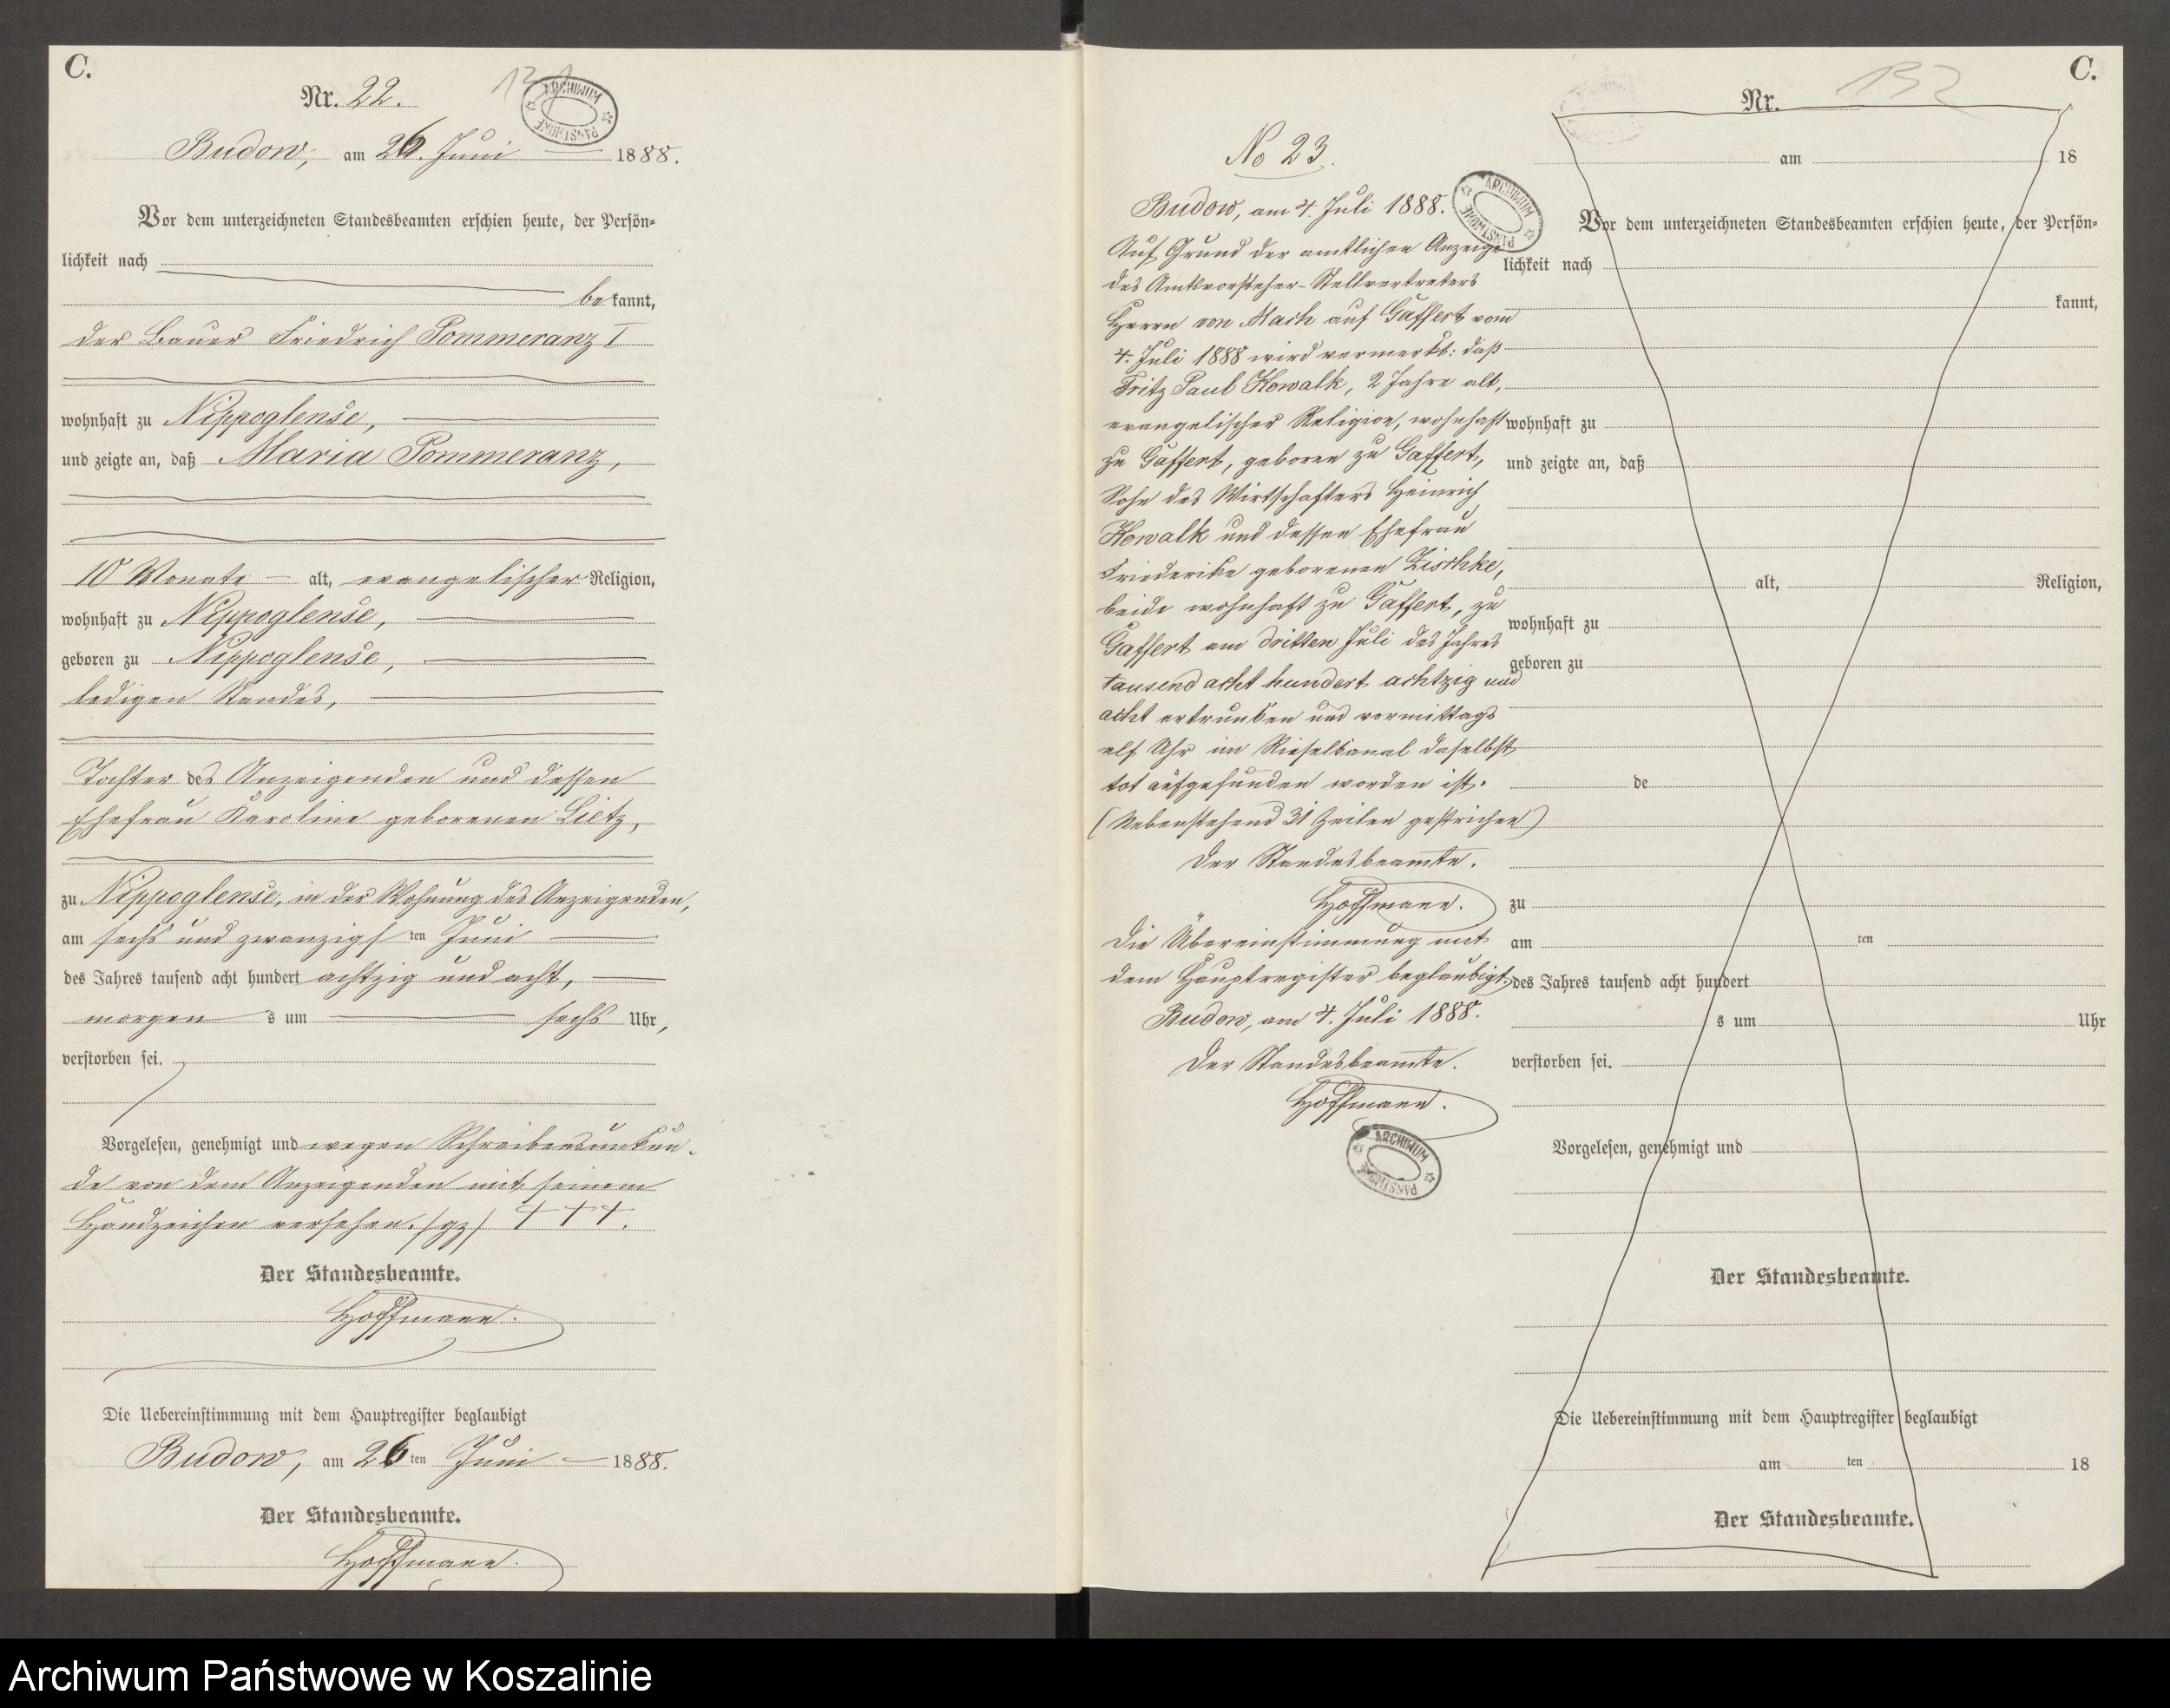 C.
Nr. 22.
131
ARCHIWUM PAŃSTWOWE
Budow, am 26. Juni 1888.
Vor dem unterzeichneten Standesbeamten erschien heute, der Persön-
lichkeit nach
bekannt,
der Bauer Friedrich Pommeranz I
wohnhaft zu Nippoglense,
und zeigte an, daß Maria Pommeranz,
10 Monate alt, evangelischer Religion,
wohnhaft zu Nippoglense,
geboren zu Nippoglense,
ledigen Standes,
Tochter des Anzeigenden und dessen
Ehefrau Karoline geborenen Lietz,
zu Nippoglense, in der Wohnung des Anzeigenden,
am sechs und zwanzigsten Juni
des Jahres tausend acht hundert achtzig und acht,
morgens um sechs Uhr,
verstorben sei.
Vorgelesen, genehmigt und wegen Schreibensunkun-
de von dem Anzeigenden mit seinem
Handzeichen versehen. /gz/ + + +.
Der Standesbeamte.
Hoffmann.
Die Uebereinstimmung mit dem Hauptregister beglaubigt
Budow, am 26ten Juni 1888.
Der Standesbeamte.
Hoffmann.
No 23.
Budow, am 4. Juli 1888.
ARCHIWUM PAŃSTWOWE
Auf Grund der amtlichen Anzeige
des Amtsvorsteher-Stellvertreters
Herrn von Mach auf Gaffert vom
4. Juli 1888 wird vermerkt: daß
Fritz Paul Kowalk, 2 Jahre alt,
evangelischer Religion, wohnhaft
zu Gaffert, geboren zu Gaffert,
Sohn des Wirtschafters Heinrich
Kowalk und dessen Ehefrau
Friederike geborenen Zischke,
beide wohnhaft zu Gaffert, zu
Gaffert am dritten Juli des Jahres
tausend acht hundert achtzig und
acht ertrunken und vormittags
elf Uhr im Rieselkanal daselbst
tot aufgefunden worden ist.
(Nebenstehend 31 Zeilen gestrichen)
Der Standesbeamte.
Hoffmann.
Die Übereinstimmung mit
dem Hauptregister beglaubigt.
Budow, am 4. Juli 1888.
Der Standesbeamte.
Hoffmann.
ARCHIWUM PAŃSTWOWE
C.
Nr.
132
am 18
Vor dem unterzeichneten Standesbeamten erschien heute, der Persön-
lichkeit nach
kannt,
wohnhaft zu
und zeigte an, daß
alt, Religion,
wohnhaft zu
geboren zu
de
zu
am ten
des Jahres tausend acht hundert
s um Uhr
verstorben sei.
Vorgelesen, genehmigt und
Der Standesbeamte.
Die Uebereinstimmung mit dem Hauptregister beglaubigt
am ten 18
Der Standesbeamte.
Archiwum Państwowe w Koszalinie